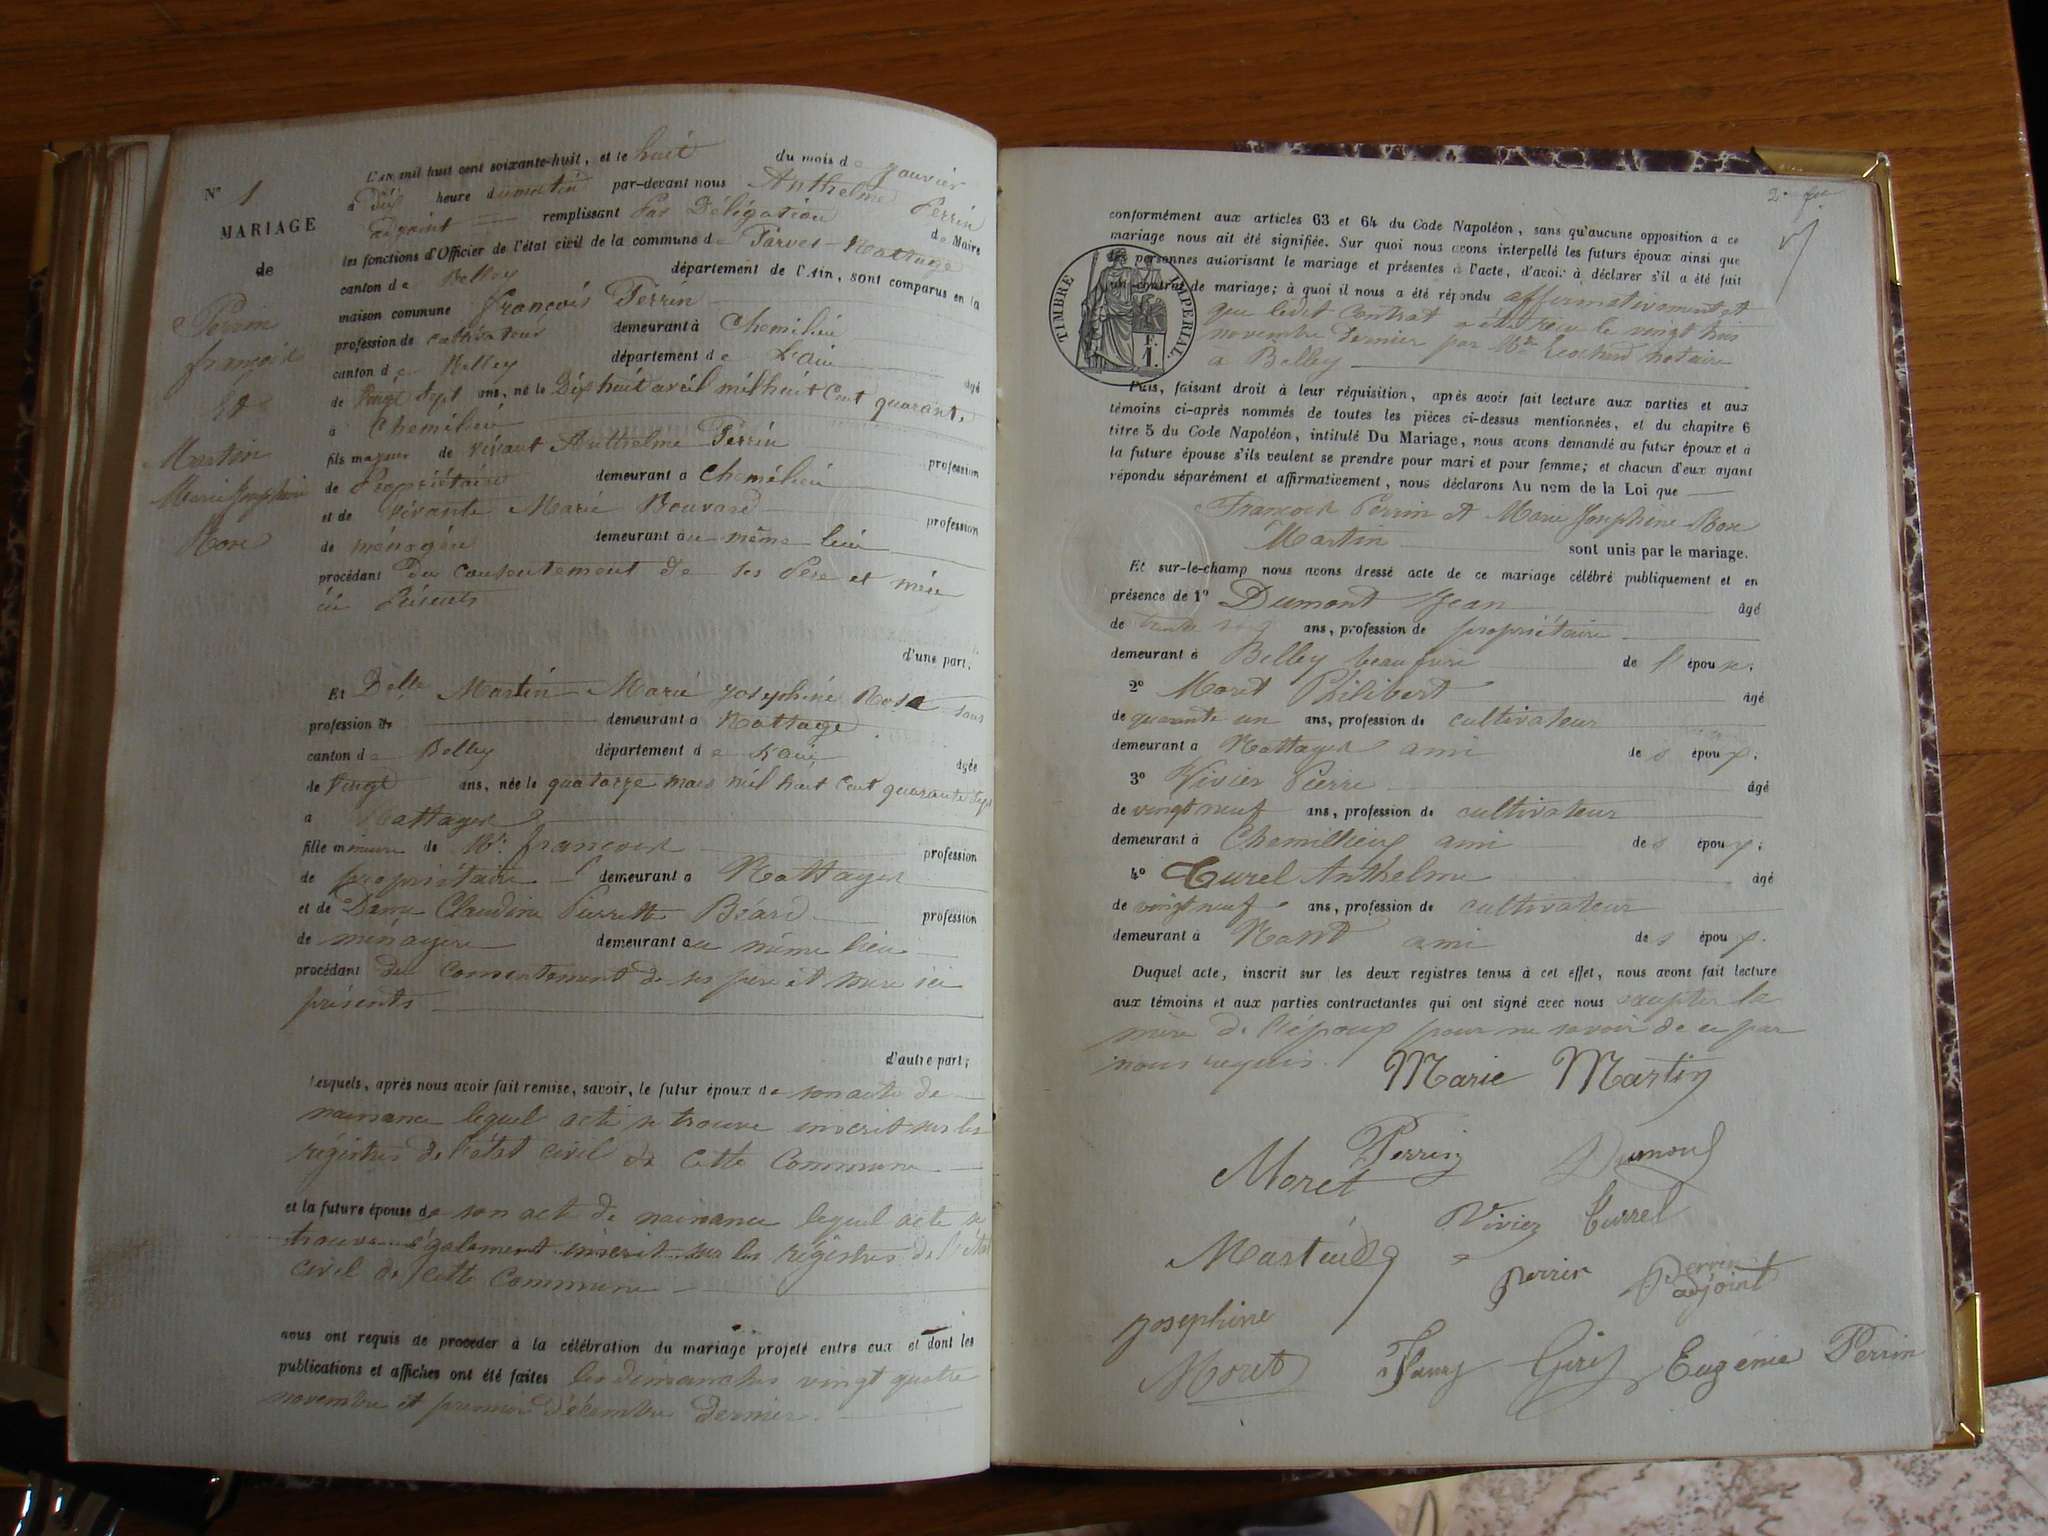 N° 1
MARIAGE
de
Perrin
françois
Et
Martin
Marie Josephine
Rose
L'an mil huit cent soixante-huit, et le huit du mois de Janvier
à dix heure du matin par-devant nous Anthelme Perrin
adjoint remplissant Par Délégation de Maire
les fonctions d'Officier de l'état civil de la commune de Parves-Nattage
canton de Belley département de l'Ain, sont comparus en la
maison commune françois Perrin
profession de cultivateur demeurant à Chemilieu
canton de Belley département de L'ain âgé
de Vingt sept ans, né le Dix huit avril mil huit Cent quarante
à Chemilieu
fils majeur de vivant Anthelme Perrin profession
de Propriétaire demeurant à Chemilieu
et de vivante Marie Bouvard profession
de ménagère demeurant au même lieu
procédant Du Consentement de ses Père et mère
ici Présents
d'une part;
Et Delle Martin Marie Josephine Rose sans
profession de demeurant à Nattage
canton de Belley département de L'ain âgée
de Vingt ans, née le quatorze mars mil huit Cent quarante sept
à Nattages
fille mineure de Mr. françois profession
de propriétaire demeurant à Nattages
et de Dame Claudine Pierrette Béard profession
de ménagere demeurant au même lieu
procédant du Consentement de ses pere et mere ici
présents
d'autre part;
Lesquels, après nous avoir fait remise, savoir, le futur époux de son acte de
naissance lequel acte se trouve inscrit sur les
régistres de l'état civil de Cette Commune
et la future épouse de son acte de naissance lequel acte se
trouve également inscrit sur les régistres de l'état
civil de Cette Commune
nous ont requis de procéder à la célébration du mariage projeté entre eux et dont les
publications et affiches ont été faites les dimanches vingt quatre
novembre et premier Décembre dernier.
conformément aux articles 63 et 64 du Code Napoléon, sans qu'aucune opposition à ce
mariage nous ait été signifiée. Sur quoi nous avons interpellé les futurs époux ainsi que
les personnes autorisant le mariage et présentes à l'acte, d'avoir à déclarer s'il a été fait
un contrat de mariage; à quoi il nous a été répondu affirmativement et
que ledit Contrat a été reçu le vingt trois
novembre dernier par Me notaire
à Belley
TIMBRE IMPERIAL
F.
1.
Puis, faisant droit à leur réquisition, après avoir fait lecture aux parties et aux
témoins ci-après nommés de toutes les pièces ci-dessus mentionnées, et du chapitre 6
titre 5 du Code Napoléon, intitulé Du Mariage, nous avons demandé au futur époux et à
la future épouse s'ils veulent se prendre pour mari et pour femme; et chacun d'eux ayant
répondu séparément et affirmativement, nous déclarons Au nom de la Loi que
Francois Perrin et Marie Josephine Rose
Martin sont unis par le mariage.
Et sur-le-champ nous avons dressé acte de ce mariage célébré publiquement et en
présence de 1° Dumont Jean âgé
de trente ans, profession de propriétaire
demeurant à Belley beau frere de l'époux;
2° Moret Philibert âgé
de quarante un ans, profession de cultivateur
demeurant à Nattages ami des époux;
3° Vivier Pierre âgé
de vingt neuf ans, profession de cultivateur
demeurant à Chemillieu ami des époux;
4° Curel Anthelme âgé
de vingt neuf ans, profession de cultivateur
demeurant à Nant ami des époux.
Duquel acte, inscrit sur les deux registres tenus à cet effet, nous avons fait lecture
aux témoins et aux parties contractantes qui ont signé avec nous excepter la
mère de l'époux pour ne savoir de ce par
nous requis.
Marie Martin
Perrin Dumont
Moret
Vivier Currel
Martin
Perrin Perrin
adjoint
Josephine
Moret Eugénie Perrin